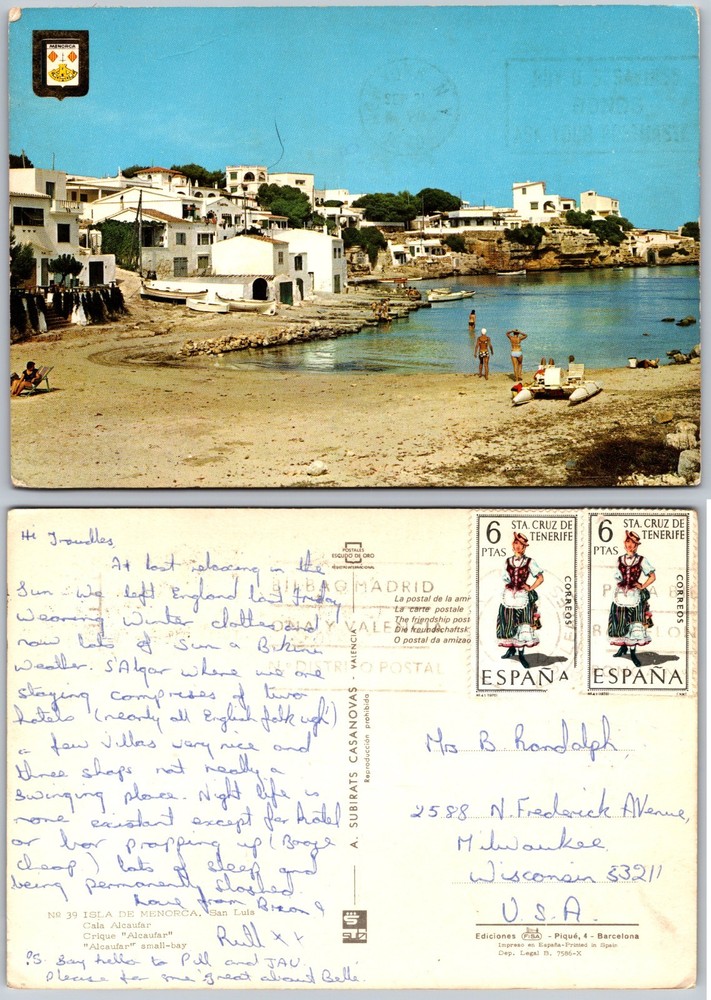 MENORCA
Hi Troudles,
At last relaxing in the
Sun. We left England last Friday
wearing winter clothes and
now lots of Sun a Bikini
weather. S'Algar where we are
staying comprises of two
hotels (nearly all English folk ugh)
a few villas very nice and
three shops not really a
swinging place. Night life is
none existant except for hotel
or bar propping up (Booze
cheap) lots of sleep and
being permanently sloshed.
Love from Brian &
Ruth x x
P.S. Say hello to Phil and JAV.
Please for me great about Belle.
Nº 39 ISLA DE MENORCA. San Luis
Cala Alcaufar
Crique "Alcaufar"
"Alcaufar" small-bay
POSTALES
ESCUDO DE ORO
BILBAO MADRID
VALENCIA
Nº DISTRITO POSTAL
La postal de la amis
La carte postale
The friendship post
Die freundschaftsk
O postal da amizad
A. SUBIRATS CASANOVAS - VALENCIA
Reproducción prohibida
6
PTAS
STA. CRUZ DE
TENERIFE
CORREOS
ESPAÑA
6
PTAS
STA. CRUZ DE
TENERIFE
CORREOS
ESPAÑA
Mrs B. Randolph,
2588 N. Frederick Avenue,
Milwaukee
Wisconsin 53211
U.S.A.
Ediciones FISA - Piqué, 4 - Barcelona
Impreso en España-Printed in Spain
Dep. Legal B. 7586-X